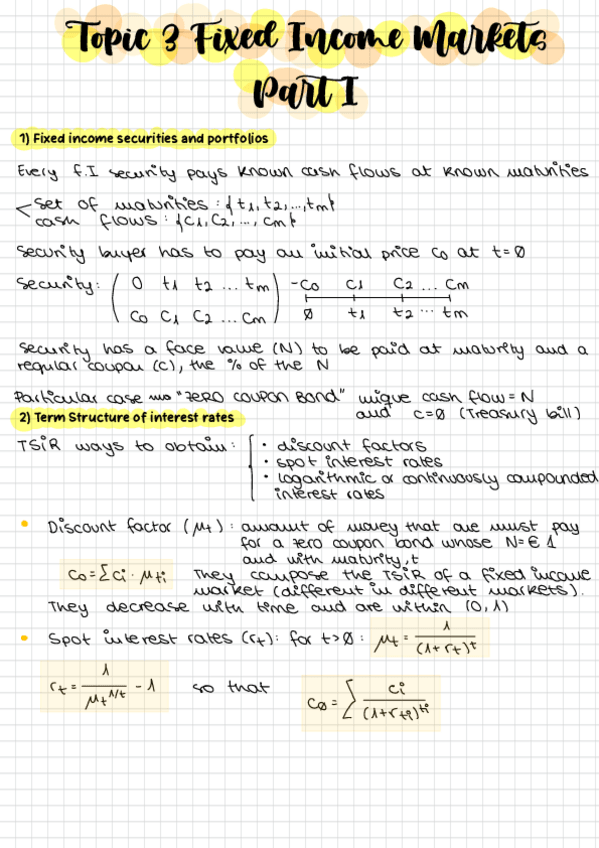 Topic 3 Fixed Income Markets
Part I
1) Fixed income securities and portfolios
Every F.I security pays known cash flows at known maturities
set of maturities : {t1, t2, ..., tm}
cash flows : {C1, C2, ..., Cm}
Security buyer has to pay an initial price Co at t=Ø
Security: ( 0 t1 t2 ... tm ) -Co C1 C2 ... Cm
Co C1 C2 ... Cm Ø t1 t2 ... tm
Security has a face value (N) to be paid at maturity and a
regular coupon (C), the % of the N
Particular case "ZERO COUPON BOND" unique cash flow = N
and c=Ø (Treasury bill)
2) Term Structure of interest rates
TSiR ways to obtain : · discount factors
· spot interest rates
· logarithmic or continuously compounded
interest rates
• Discount factor (μt) : amount of money that one must pay
for a zero coupon bond whose N=€1
and with maturity, t
Co = Σ Ci · μti They compose the TSiR of a fixed income
market (different in different markets).
They decrease with time and are within (0,1)
• Spot interest rates (rt): for t>Ø : μt = 1 / (1+rt)^t
rt = 1 / μt^1/t - 1 so that CØ = Σ Ci / (1+rti)^ti